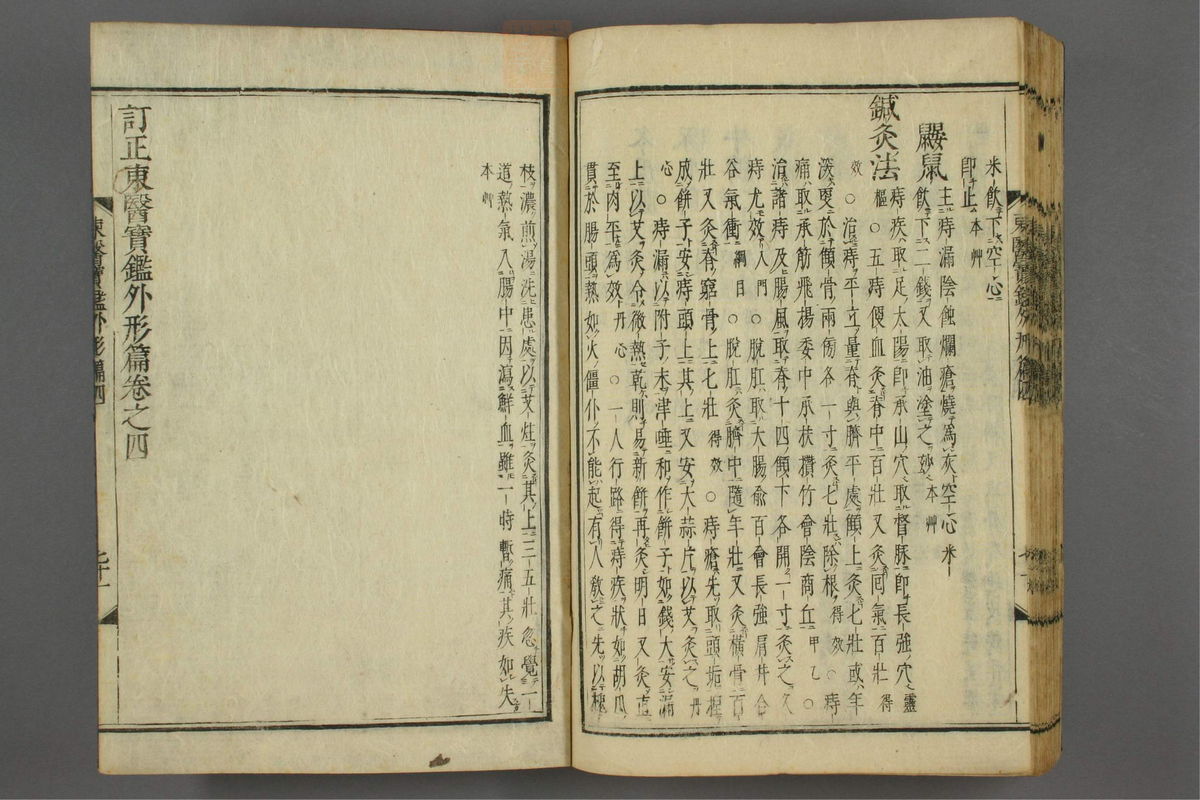 米飲下空心
即止 本艸
鼴鼠 主痔漏陰蝕爛瘡燒爲灰空心米
飲下二錢又取油塗之妙 本艸
鍼灸法 痔疾取足太陽即承山穴取督脉即長強穴 靈
樞 ○五痔便血灸脊中百壯又灸囘氣百壯 得
效 ○治痔平立量脊與臍平處顀上灸七壯或年
深更於顀骨兩傍各一寸灸七壯除根 得效 ○痔
痛取承筋飛揚委中承扶攢竹會陰商丘 甲乙 ○
治諸痔及腸風取脊十四顀下各開一寸灸之久
痔尤效 入門 ○脫肛取大腸兪百會長強肩井合
谷氣衝 綱目 ○脫肛灸臍中隨年壯又灸橫骨百
壯又灸脊窮骨上七壯 得效 ○痔瘡先取頭垢捏
成餅子安痔頭上其上又安大蒜片以艾灸之 丹
心 ○痔漏以附子末津唾和作餅子如錢大安漏
上以艾灸令微熱乾則易新餅再灸明日又灸直
至肉平爲效 丹心 ○一人行路得痔疾狀如胡瓜
貫於腸頭熱如火僵仆不能起有人敎之先以槐
枝濃煎湯洗患處以艾炷灸其上三五壯忽覺一
道熱氣入腸中因瀉鮮血雖一時暫痛其疾如失
本艸
訂正東醫寶鑑外形篇卷之四
東醫寶鑑外形篇四